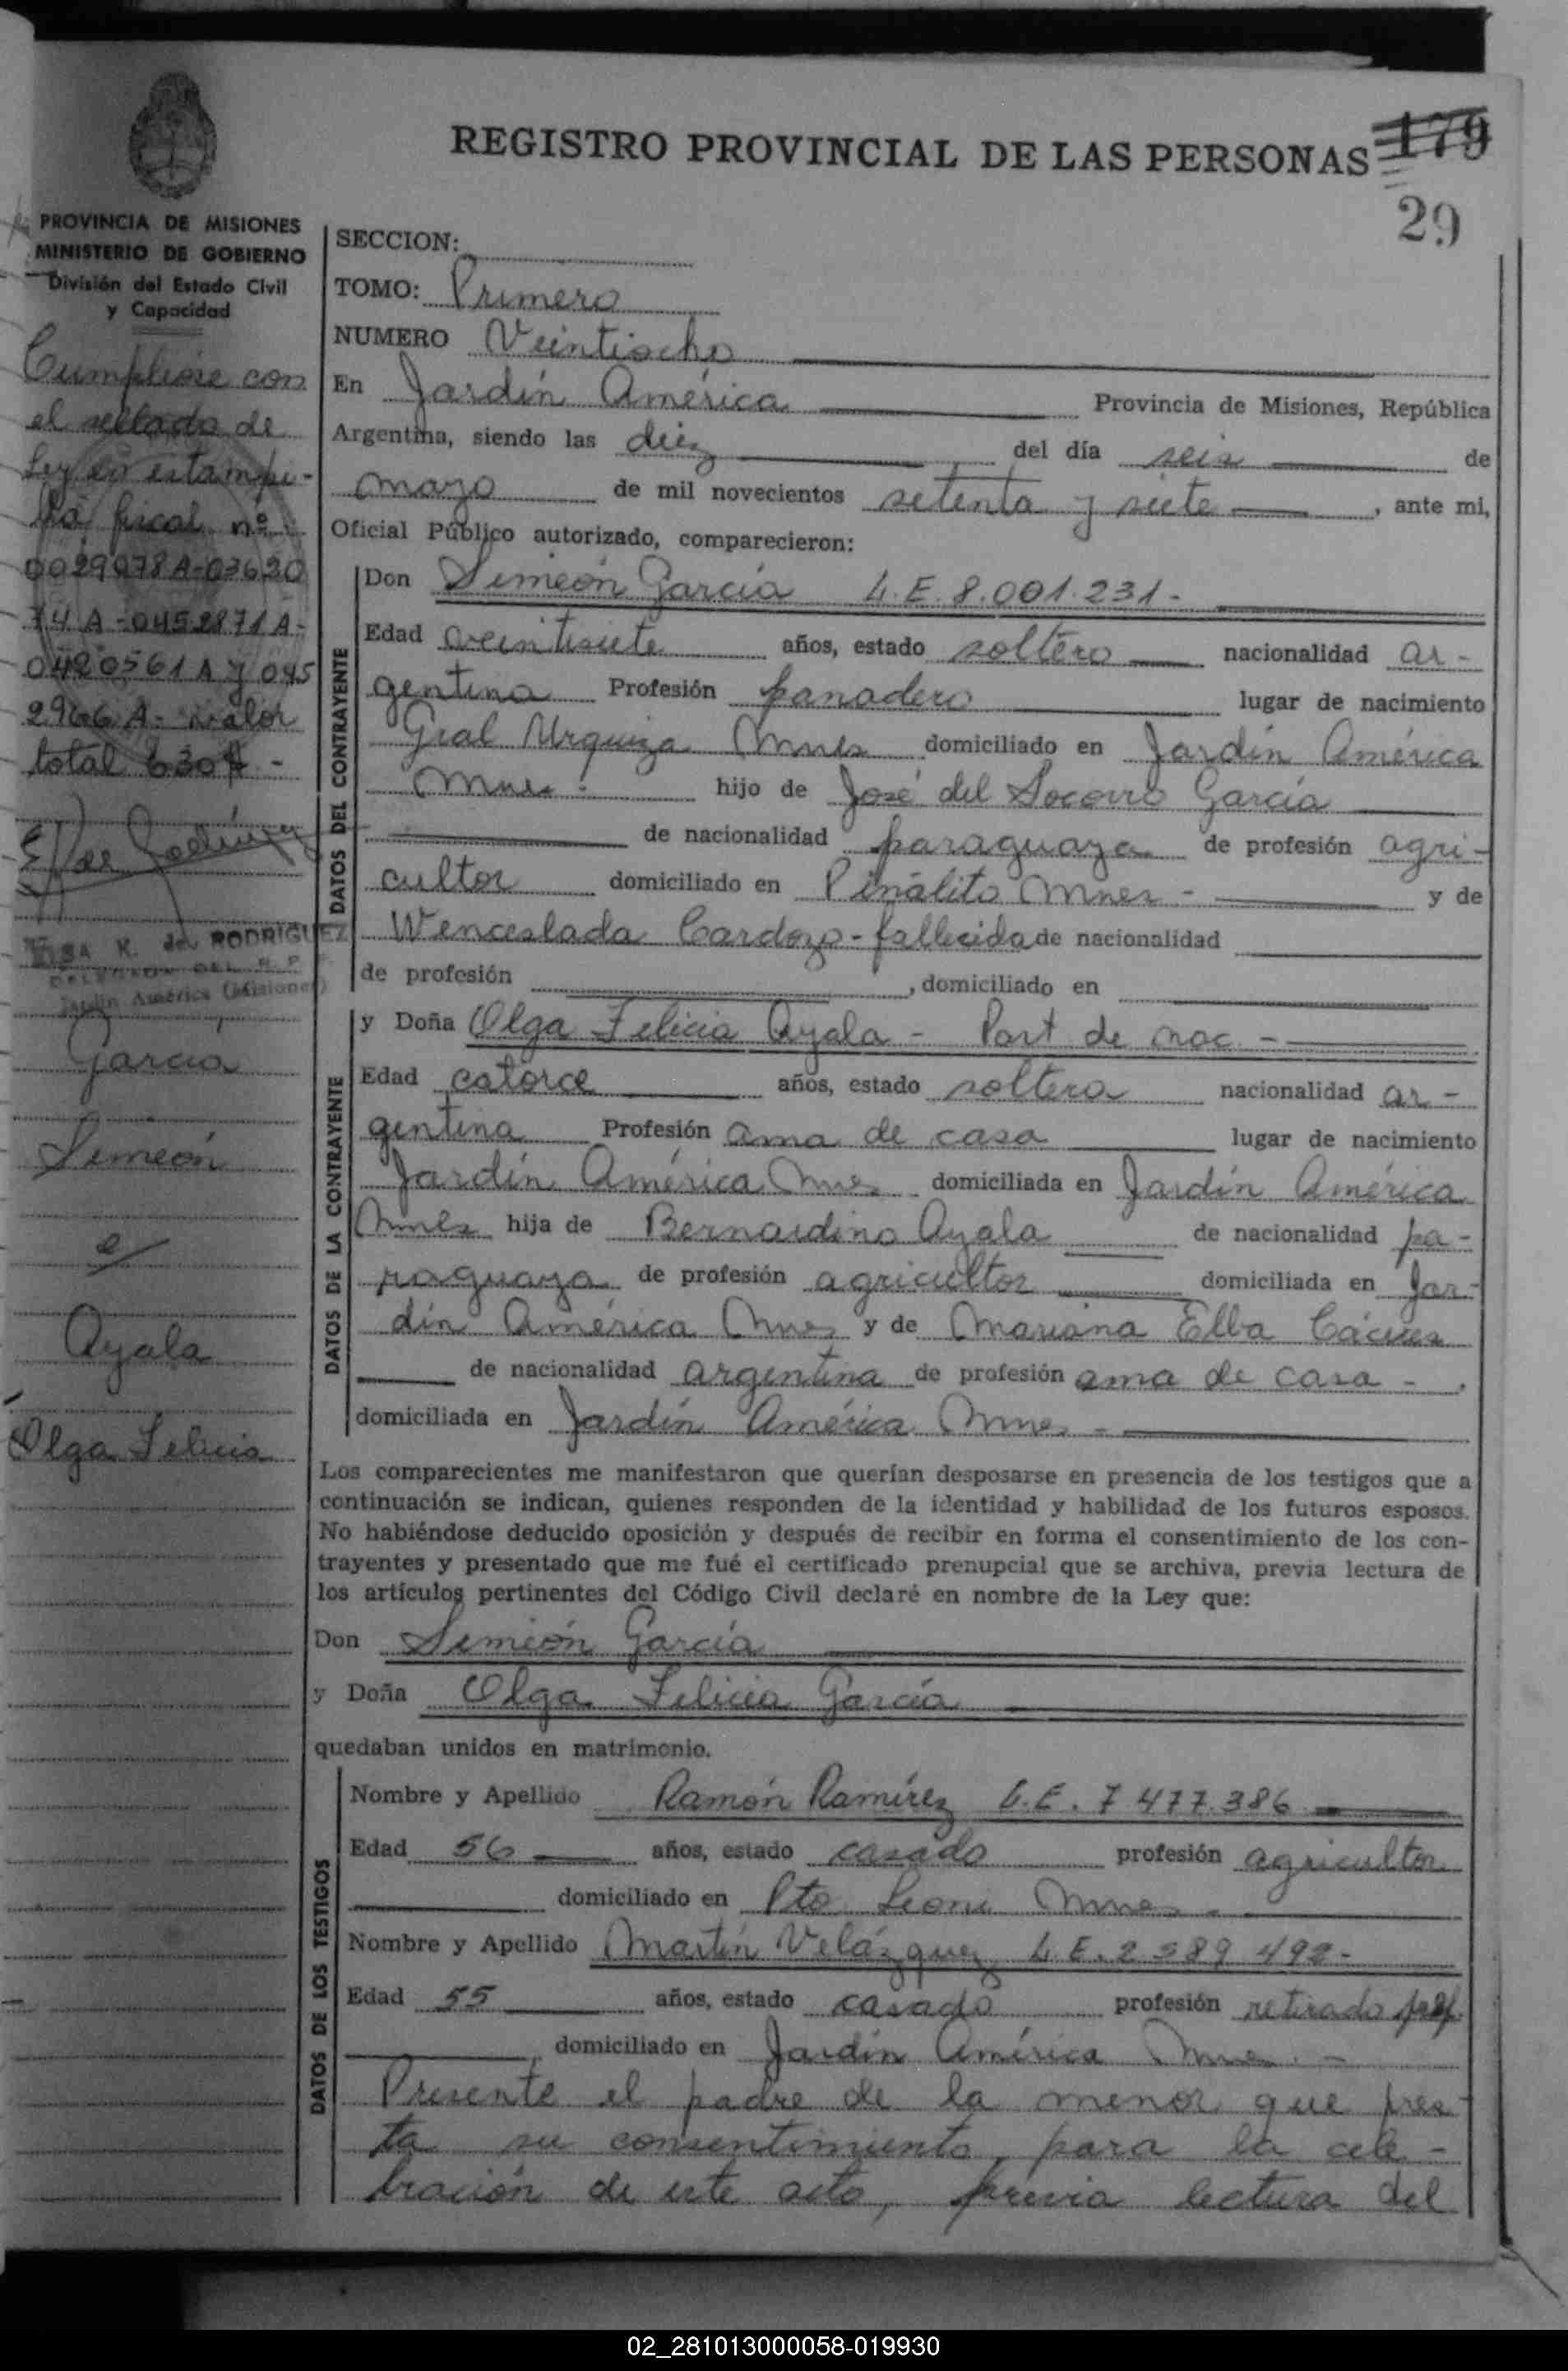 REGISTRO PROVINCIAL DE LAS PERSONAS 179
29
PROVINCIA DE MISIONES
MINISTERIO DE GOBIERNO
División del Estado Civil
y Capacidad
Cumpliose con
el sellado de
Ley en estampi-
lla fiscal nº
0029078A-03620
74 A-0452871A-
0420561 A y 045
2966 A- valor
total 630$-
ELSA K. de RODRIGUEZ
Jardín América (Misiones)
García
Simeón
e/
Ayala
Olga Felicia
SECCION:
TOMO: Primero
NUMERO Veintiocho
En Jardín América Provincia de Misiones, República
Argentina, siendo las diez del día seis de
mayo de mil novecientos setenta y siete, ante mi,
Oficial Público autorizado, comparecieron:
DATOS DEL CONTRAYENTE
Don Simeón García L.E. 8.001.231-
Edad veintisiete años, estado soltero nacionalidad ar-
gentina Profesión panadero lugar de nacimiento
Gral Urquiza Mnes domiciliado en Jardín América
Mnes. hijo de José del Socorro García
de nacionalidad paraguaya de profesión agri-
cultor domiciliado en Piñalito Mnes- y de
Wenceslada Cardozo-fallecida de nacionalidad
de profesión , domiciliado en
DATOS DE LA CONTRAYENTE
y Doña Olga Felicia Ayala - Part de nac -
Edad catorce años, estado soltera nacionalidad ar-
gentina Profesión ama de casa lugar de nacimiento
Jardín América Mnes domiciliada en Jardín América
Mnes hija de Bernardino Ayala de nacionalidad pa-
raguaya de profesión agricultor domiciliada en Jar-
dín América Mnes y de Mariana Elba Cáceres
de nacionalidad argentina de profesión ama de casa -
domiciliada en Jardín América Mnes -
Los comparecientes me manifestaron que querían desposarse en presencia de los testigos que a
continuación se indican, quienes responden de la identidad y habilidad de los futuros esposos.
No habiéndose deducido oposición y después de recibir en forma el consentimiento de los con-
trayentes y presentado que me fué el certificado prenupcial que se archiva, previa lectura de
los artículos pertinentes del Código Civil declaré en nombre de la Ley que:
Don Simeón García
y Doña Olga Felicia García
quedaban unidos en matrimonio.
DATOS DE LOS TESTIGOS
Nombre y Apellido Ramón Ramírez L.E. 7 477.386
Edad 56 años, estado casado profesión agricultor
domiciliado en Pto Leoni Mnes -
Nombre y Apellido Martín Velázquez L.E. 2 589 492-
Edad 55 años, estado casado profesión retirado
domiciliado en Jardín América Mnes. -
Presente el padre de la menor que pres-
ta su consentimiento para la cele-
bración de este acto, previa lectura del
02_281013000058-019930